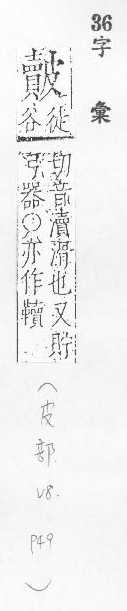 36字彙
䢱徒谷
切音瀆滑也又貯
弓器○亦作韥
(皮部 v8. P49)